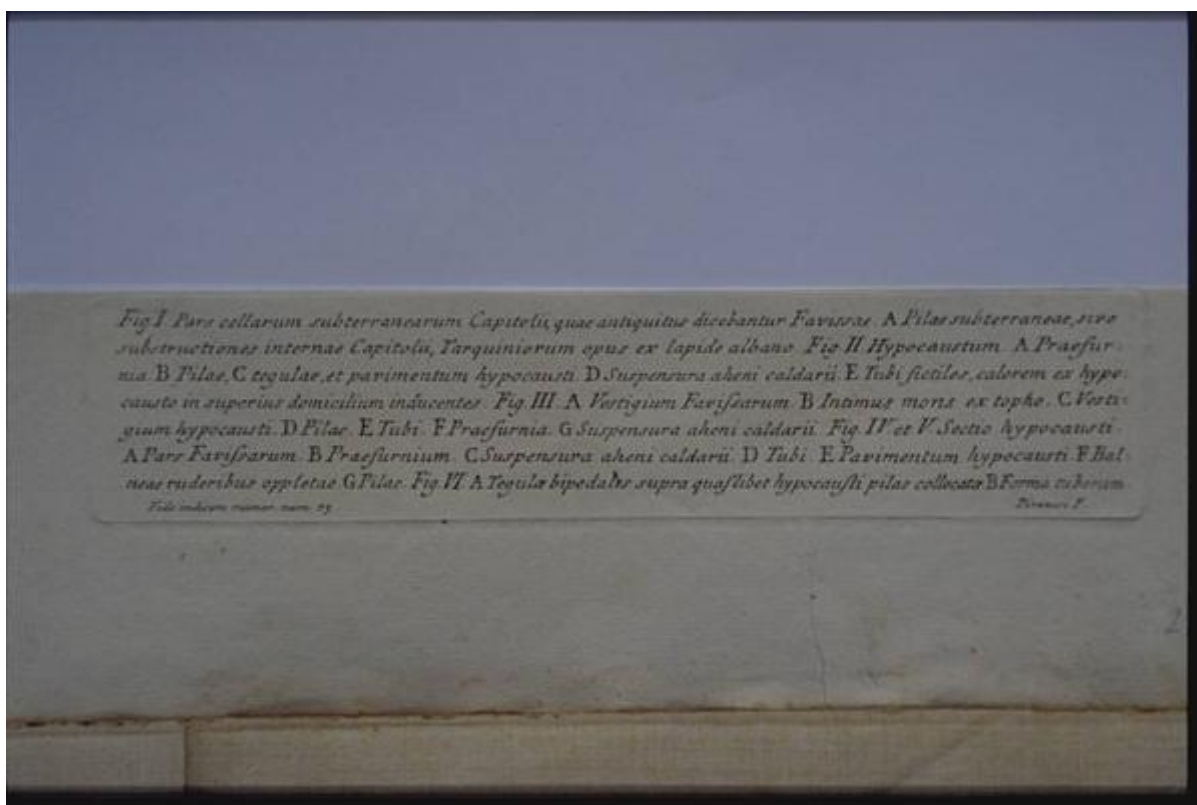 Fig. I. Pars cellarum subterranearum Capitolii, quae antiquitus dicebantur Favissae. A Pilae subterraneae, sive
substructiones internae Capitolii, Tarquiniorum opus ex lapide albano. Fig. II Hypocaustum. A Praefur-
nia. B Pilae, C tegulae, et pavimentum hypocausti. D Suspensura aheni caldarii. E Tubi fictiles, calorem ex hypo-
causto in superius domicilium inducentes. Fig. III. A Vestigium Favissarum. B Intimus mons ex topho. C Vesti-
gium hypocausti. D Pilae. E Tubi. F Praefurnia. G Suspensura aheni caldarii. Fig. IV et V Sectio hypocausti.
A Pars Favissarum. B Praefurnium. C Suspensura aheni caldarii. D Tubi. E Pavimentum hypocausti. F Bal-
neae ruderibus oppletae G Pilae. Fig. VI A Tegulæ bipedales supra quaslibet hypocausti pilas collocatæ B Forma tuborum
Vide indicem num. Piranesi F.
2